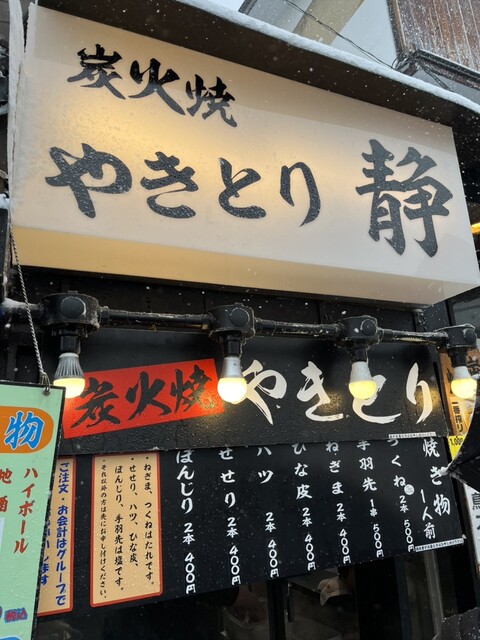 炭火焼
やきとり 静
炭火焼 やきとり
焼き物 一人前
つくね 2本 500円
手羽先 1本 500円
ねぎま 2本 400円
ひな皮 2本 400円
ハツ 2本 400円
せせり 2本 400円
ぼんじり 2本 400円
ねぎま、つくねはたれです。
せせり、ハツ、ひな皮、
ぼんじり、手羽先は塩です。
それ以外の方は先にお申し付けください。
ご注文 お会計はグループで
物
ハイボール
地酒
税込
一番搾り